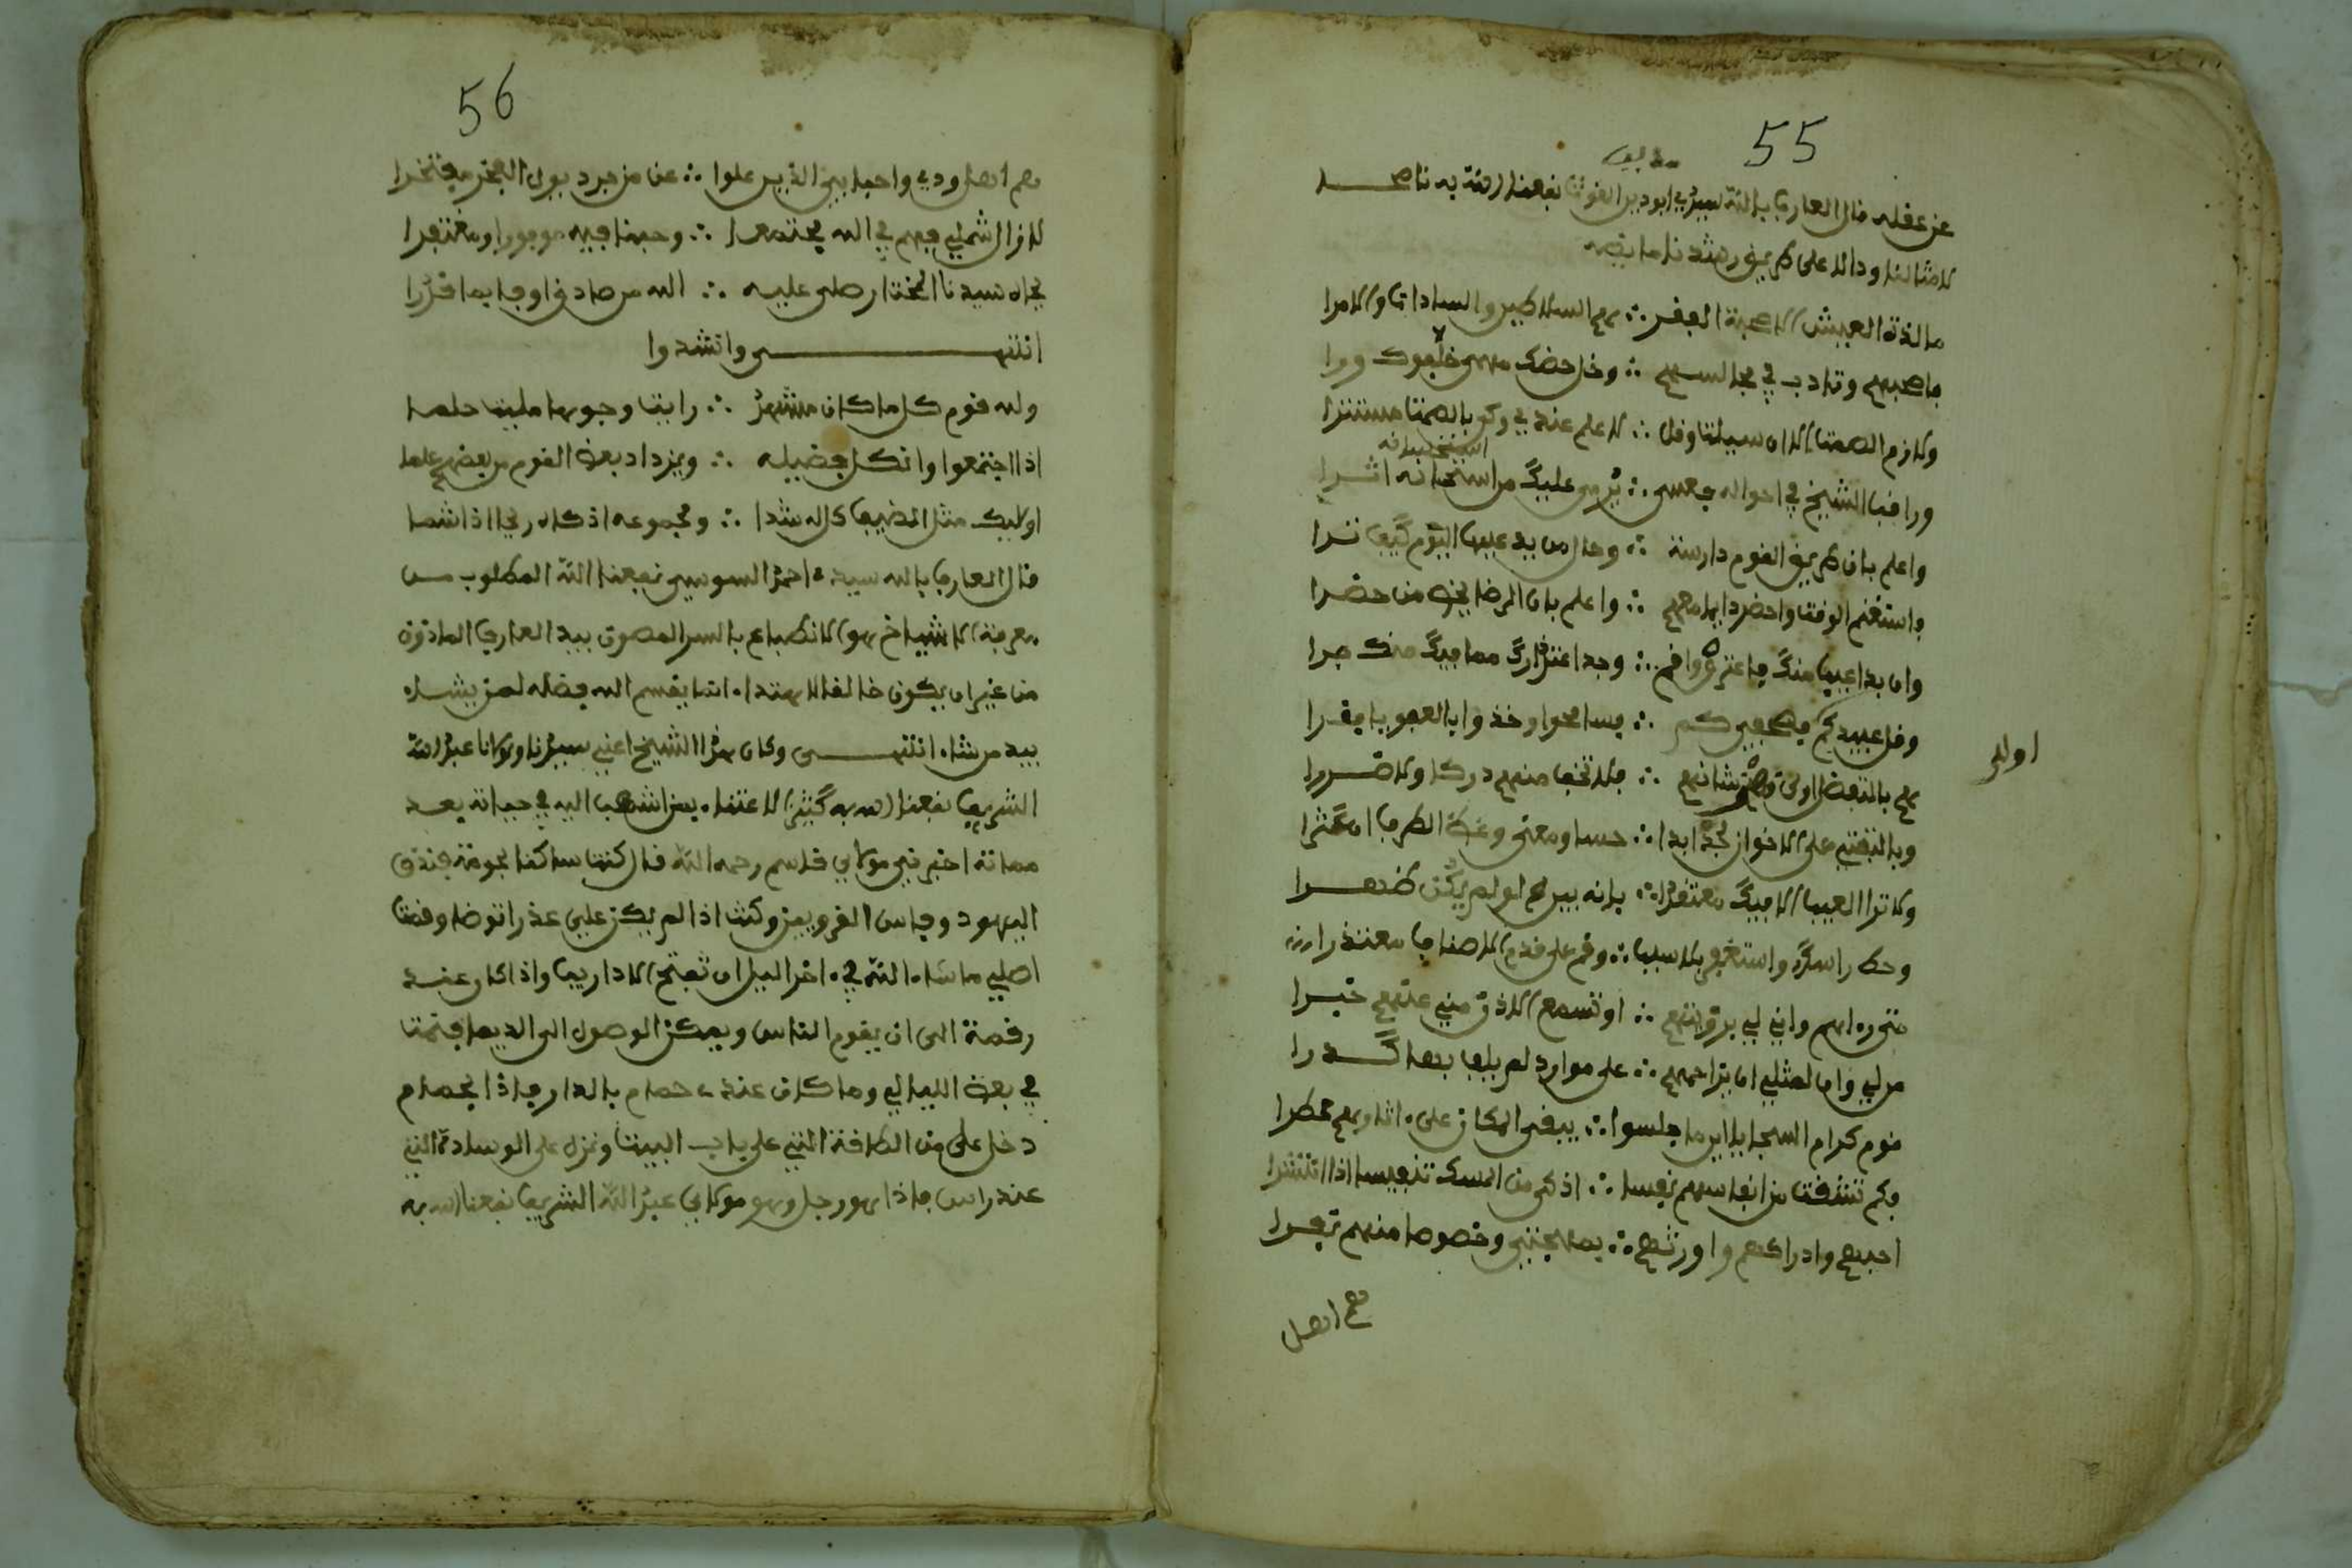 55
عن عفله فال العارف بالله سيدي ابو دين الغوث نفعنا الله به ناصحا
لامثالنا ودالا على طريق رشدنا ما نصه
ما لذة العيش الا صحبة الفقر ∴ هم السلاطين والسادات والامرا
فاصحبهم وتادب في مجالسهم ∴ وخل حضك مهمى خلفوك ورا
ولازم الصمت الا ان سيلت وفل ∴ لا علم عندي وكن بالصمت مستترا
ورافب الشيخ في احواله فعسى ∴ يرى عليك من استحسانه اثرا
واعلم بان طريق الفوم دارسة ∴ وحال من يدعيها اليوم كيف ترا
واستغنم الوفت واحضر دايما معهم ∴ واعلم بان الرضا يخص من حضرا
وان بدا عيب منك فاعترف واقم ∴ وجه اعتذارك مما فيك منك جرا
وفل عبيدكم بصفحكم ∴ فسامحوا وخذوا بالعفو يا ففرا
هم بالتفضل اولى وهو شانهم ∴ فلا تخف منهم دركا ولا ضررا
اولى
وبالتفتي على الاخوان جد ابدا ∴ حسا ومعنى وغض الطرف ان عثرا
ولا ترا العيب الا فيك معتفدا ∴ بانه بين لو لم يكن ظهرا
وحط راسك واستغفر بلا سبب ∴ وفم على فدم الانصاف معتذرا
متى وانى لي برؤيتهم ∴ او تسمع الاذن مني عنهم خبرا
من لي وانى لمثلي ان يزاحمهم ∴ على موارد لم بها كدرا
فوم كرام السجايا اين ما جلسوا ∴ يبفى المكان على اثارهم عطرا
فكم تنشفت من انفاسهم نفسا ∴ اذكى من المسك تنفيسا اذا انتشرا
احبهم وادراكهم واورثهم ∴ بمهجتي وخصوصا منهم نفرا
هم اهل
56
هم اهل ودي واحبابي الذين علوا ∴ عن من يجر ذيول الفخر مفتخرا
لا زال شملي بهم في الله مجتمعا ∴ وحبنا فيه موفورا ومغتفرا
بجاه سيدنا المختار صلى عليه ∴ الله من صادق اوفى بما فررا
انتهى وانشدوا
ولله فوم كل ما كان مشهد ∴ رايت وجوها مليت حلما
اذا اجتمعوا وان كل فضيله ∴ ويزداد بعض الفوم من بعضهم علما
اولايك مثل المضيف كله شدا ∴ ومجموعه اذكاه ريحا اذا شما
فال العارف بالله سيدي احمد السوسي نفعنا الله المطلوب من
معرفة الاشياخ هو الانطباع بالسر المصون بيد العارف الماذون
من غير ان يكون خالفا للاهتداء انما يفسم الله فضله لمن يشاء
بيد من شاء انتهى وكان هذا الشيخ اعني سيدنا ومولانا عبد الله
الشريف نفعنا الله به كثير الاعتناء بمن انتسب اليه في حياته وبعد
مماته اخبرني مولاي فاسم رحمه الله فال كنت ساكنا بحومة فندق
اليهود وفاس الفرويين وكنت اذا لم يكن علي عذر اتوضا وفتا
اصلي ما شاء الله في اخر اليل ان تفتح الدار واذا كان عنده
رفمة الى ان يفوم الناس ويمكن الوصول الى الديما فنمت
في بعض الليالي وما كان عندي حمام بالدار فاذا بحمام
دخل علي من الطافة التي على باب البيت ونزل على الوسادة التي
عند راسي فاذا هو رجل وهو مولاي عبد الله الشريف نفعنا الله به